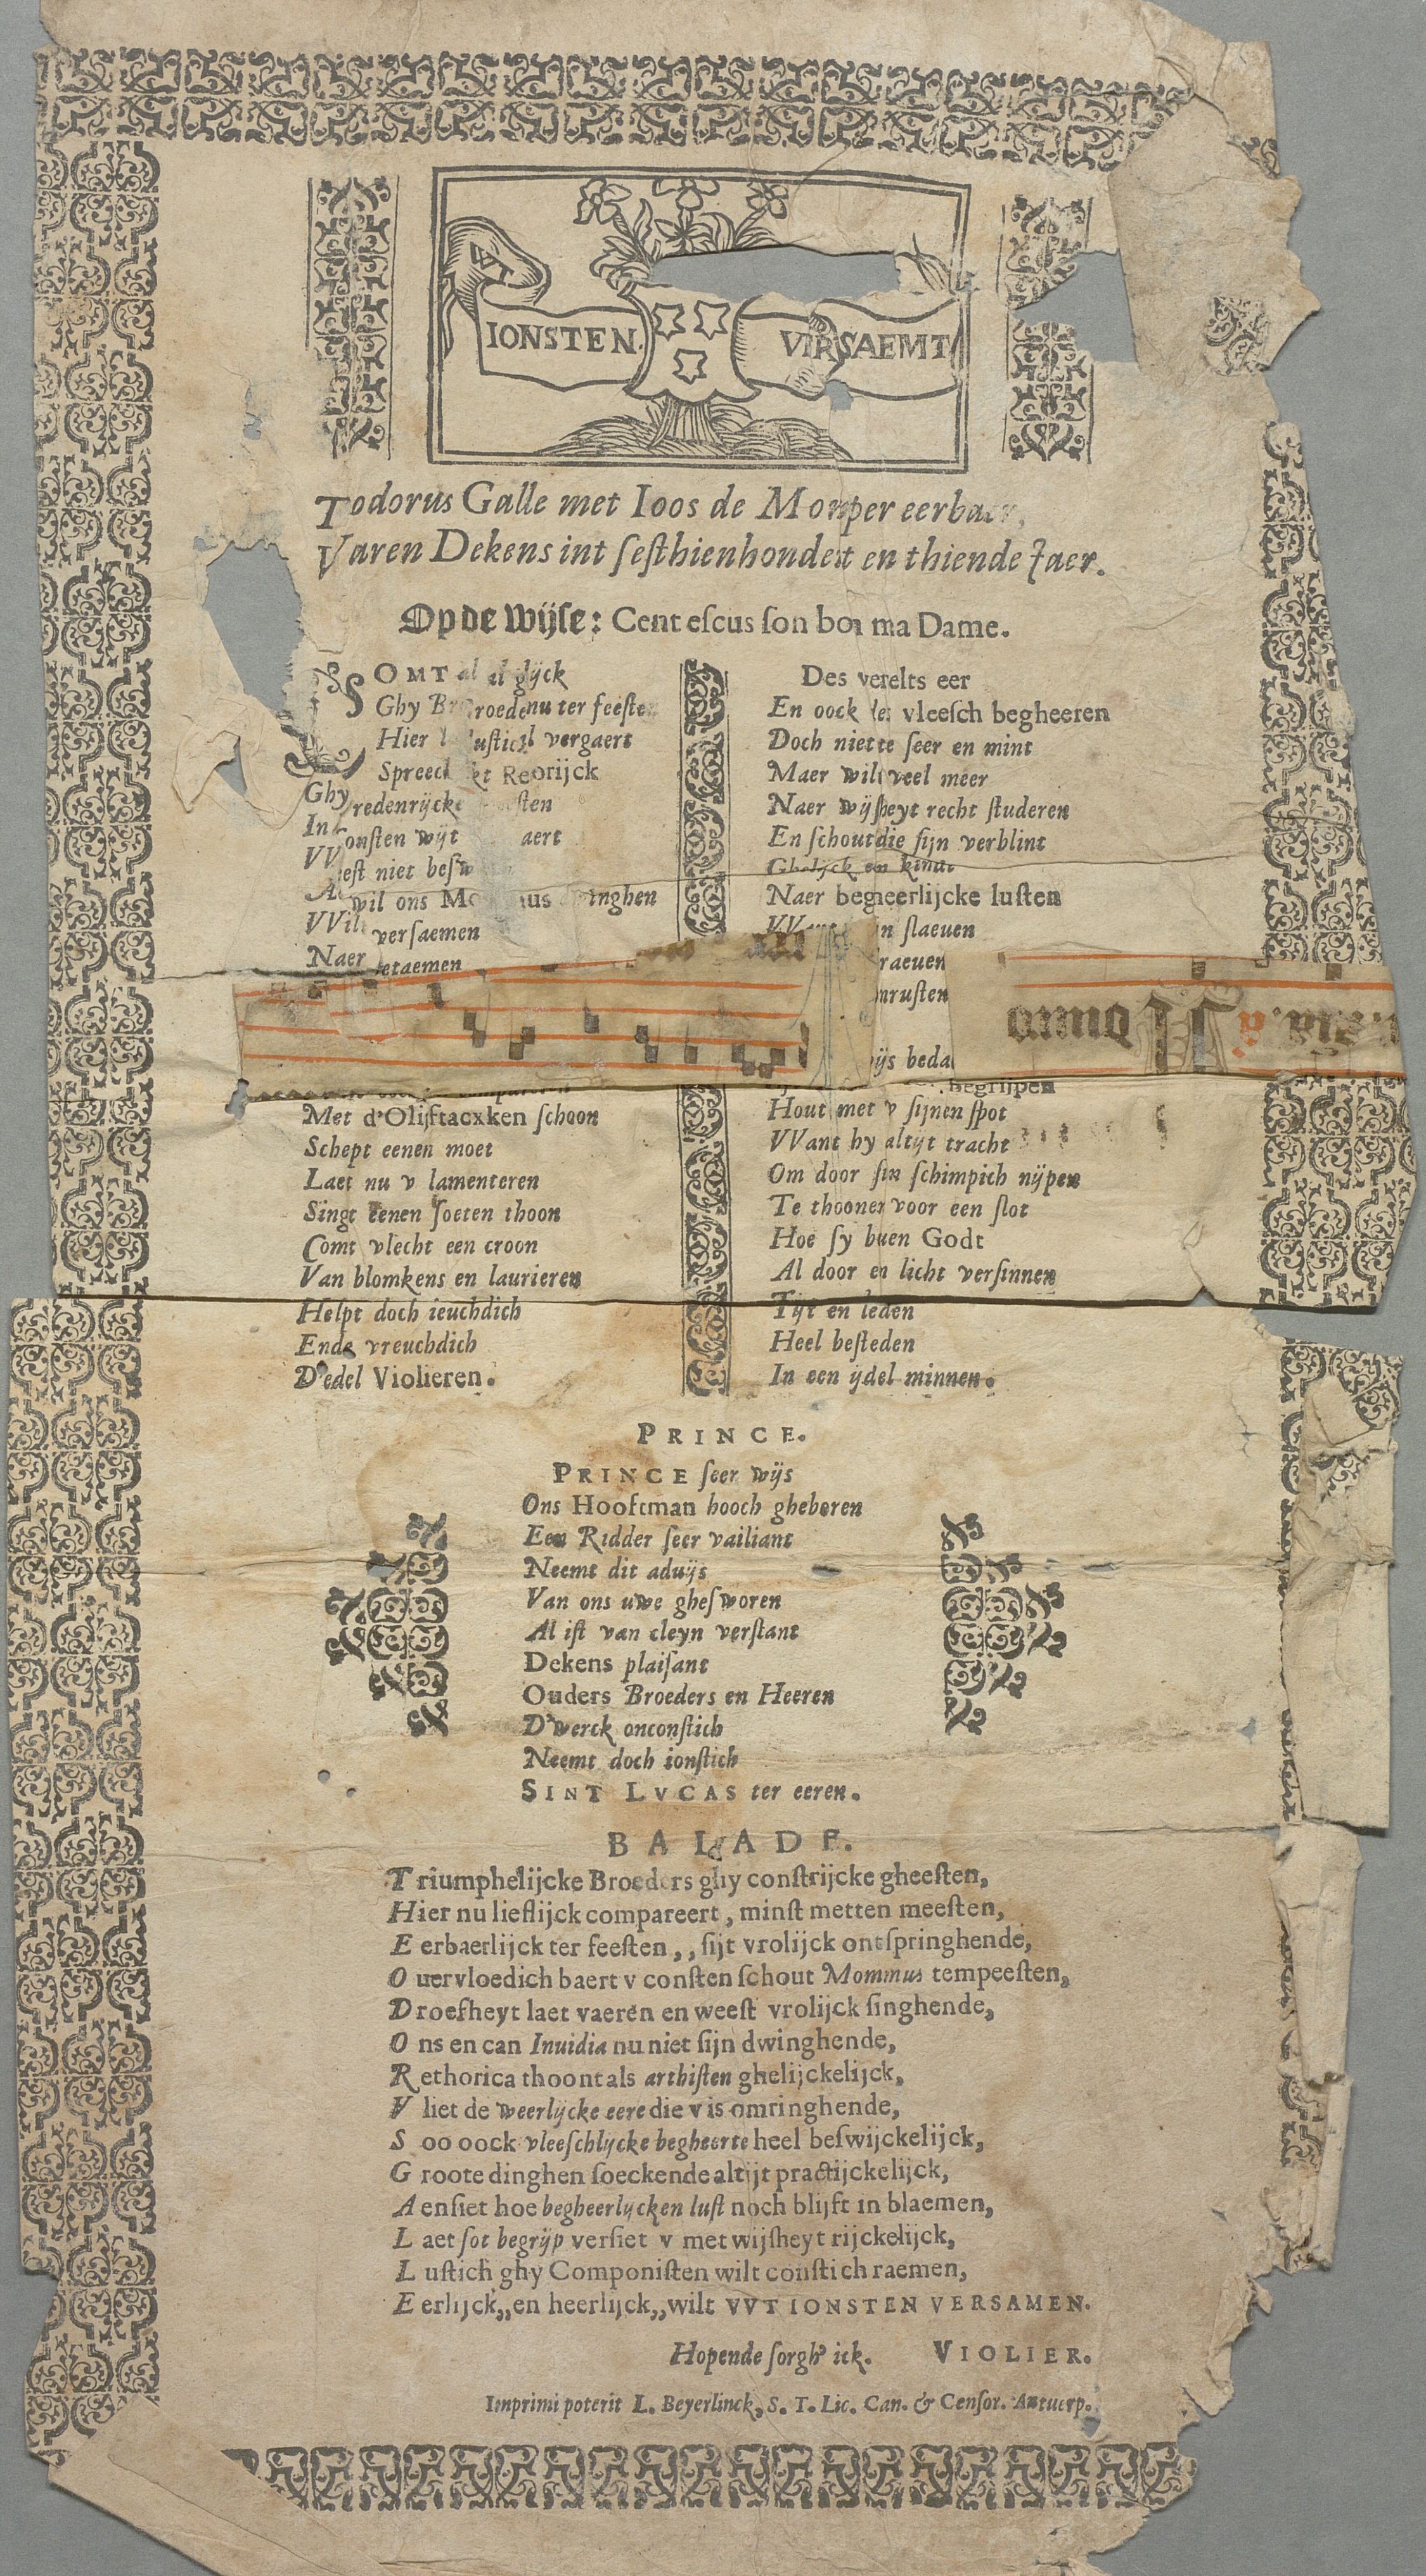 IONSTEN. VERSAEMT
Todorus Galle met Ioos de Monper eerbaer,
Varen Dekens int sesthienhondert en thiende Jaer.
Op de Wijse: Cent escus son bon ma Dame.
COMT al ghelijck
Ghy Broeders nu ter feesten
Hier lustich vergaert
Spreeckt Retorijck
Ghy redenrijcke gheesten
In Consten wijt vermaert
VVeest niet
Al wil ons Mommus
VVilt versaemen
Naer betaemen
Met d'Olijftacxken schoon
Schept eenen moet
Laet nu v lamenteren
Singt eenen soeten thoon
Comt vlecht een croon
Van blomkens en laurieren
Helpt doch ieuchdich
Ende vreuchdich
D'edel Violieren.
Des verelts eer
En oock des vleesch begheeren
Doch niet te seer en mint
Maer wilt veel meer
Naer wijsheyt recht studeren
En schout die sijn verblint
Ghelijck een kindt
Naer begheerlijcke lusten
slaeuen
begrijpen
Hout met v sijnen spot
VVant hy altijt tracht
Om door sin schimpich nijpen
Te thoonen voor een slot
Hoe sy buen Godt
Al door een licht versinnen
Tijt en leden
Heel besteden
In een ijdel minnen.
PRINCE.
PRINCE seer wijs
Ons Hooftman hooch gheboren
Een Ridder seer vailiant
Neemt dit aduijs
Van ons uwe ghesworen
Al ist van cleyn verstant
Dekens plaisant
Ouders Broeders en Heeren
D'werck onconstich
Neemt doch ionstich
SINT LVCAS ter eeren.
BALADE.
Triumphelijcke Broeders ghy constrijcke gheesten,
Hier nu lieflijck compareert, minst metten meesten,
Eerbaerlijck ter feesten,, sijt vrolijck ontspringhende,
Ouervloedich baert v consten schout Mommus tempeesten,
Droefheyt laet vaeren en weest vrolijck singhende,
Ons en can Inuidia nu niet sijn dwinghende,
Rethorica thoont als arthisten ghelijckelijck,
Vliet de weerlijcke eere die v is omringhende,
Soo oock vleeschlijcke begheerte heel beswijckelijck,
Groote dinghen soeckende altijt practijckelijck,
Aensiet hoe begheerlijcken lust noch blijft in blaemen,
Laet sot begrijp versiet v met wijsheyt rijckelijck,
Lustich ghy Componisten wilt constich raemen,
Eerlijck,,en heerlijck,,wilt VVT IONSTEN VERSAMEN.
Hopende sorgh' ick. VIOLIER.
Imprimi poterit L. Beyerlinck, S. T. Lic. Can. & Censor. Antuerp.